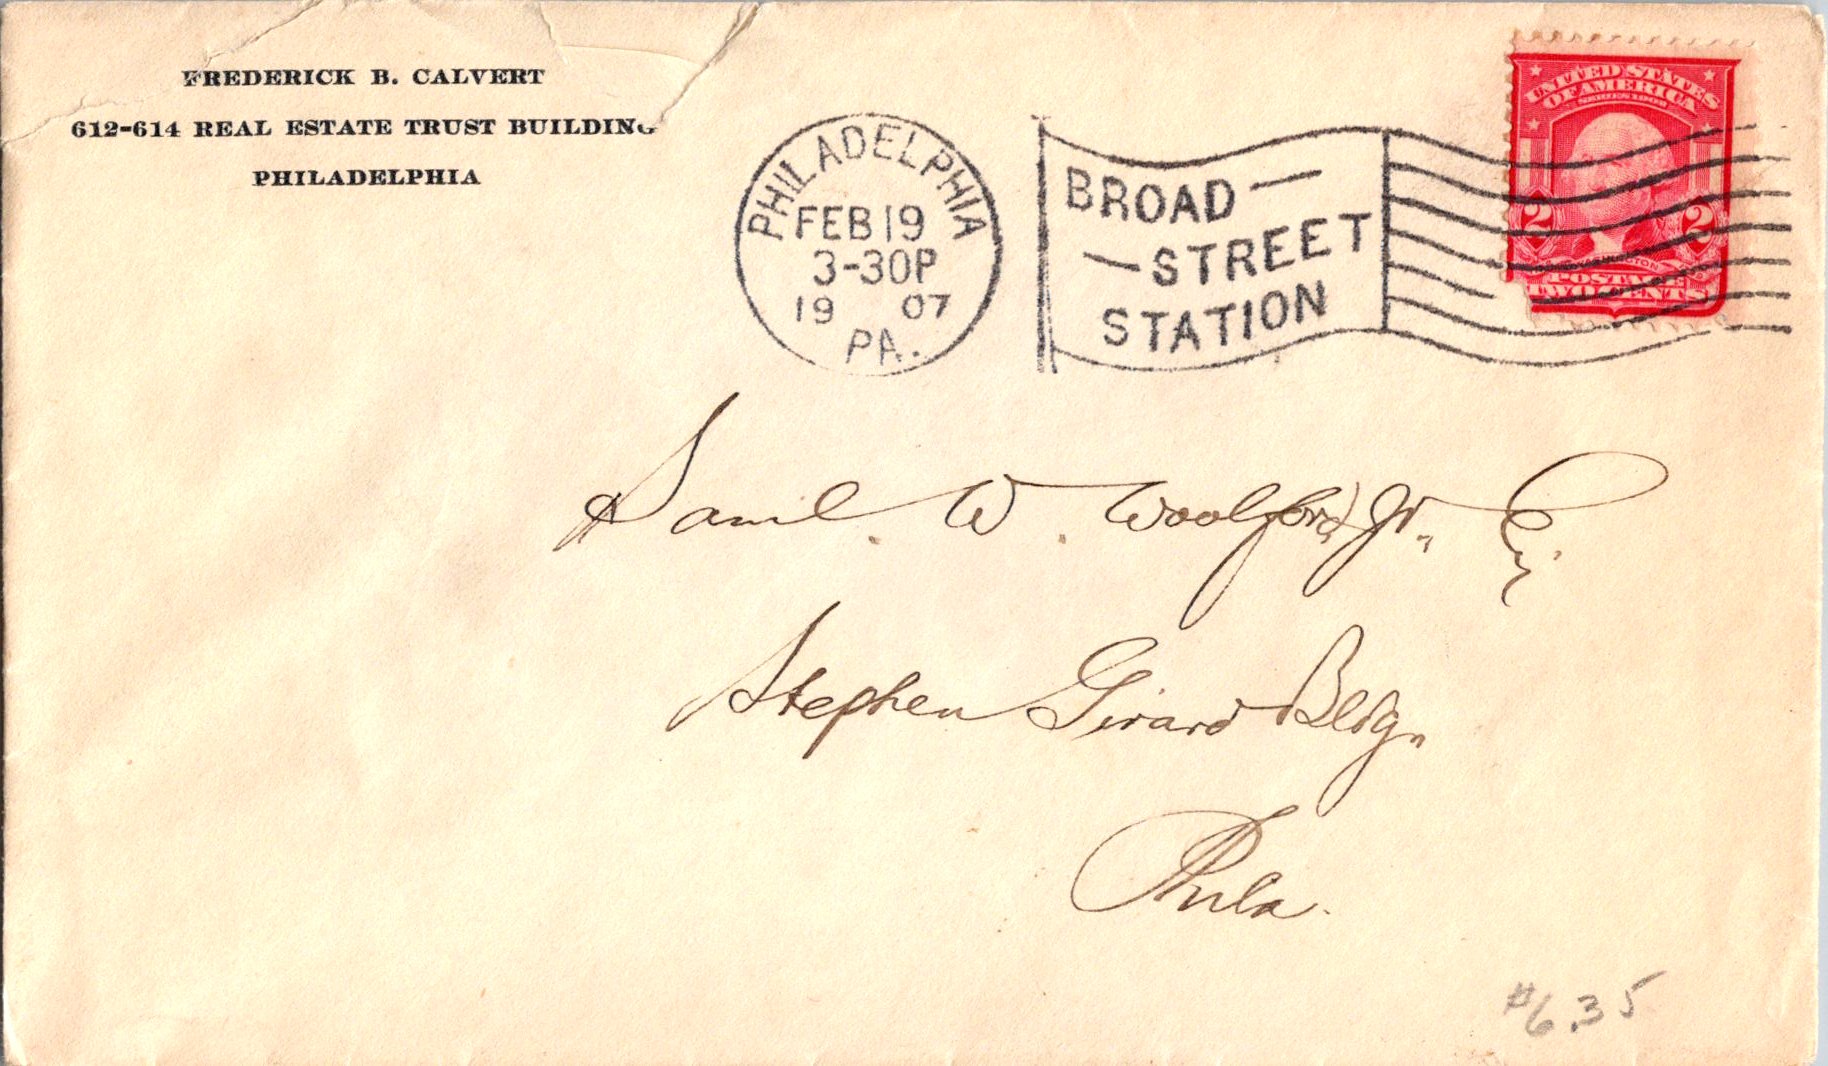 FREDERICK B. CALVERT
612-614 REAL ESTATE TRUST BUILDING
PHILADELPHIA
PHILADELPHIA
FEB 19
3-30P
1907
PA.
BROAD
STREET
STATION
UNITED STATES
OF AMERICA
SERIES 1902
2 2
WASHINGTON
POSTAGE
TWO CENTS
Saml. W. Woolford Jr., Esq.
Stephen Girard Bldg.
Phila.
#6.35